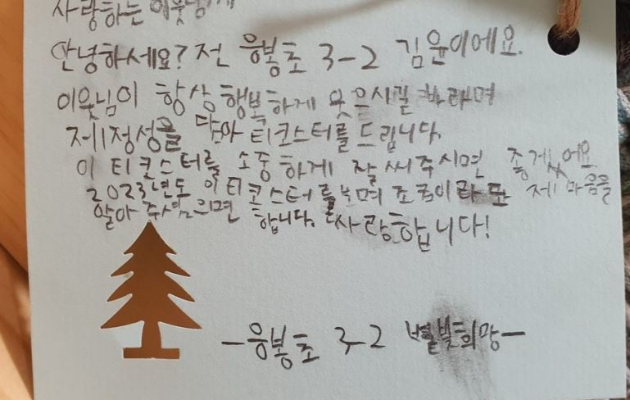 사랑하는 이웃님께
안녕하세요? 전 응봉초 3-2 김윤이에요.
이웃님이 항상 행복하게 웃으시길 바라며
제 정성을 담아 티코스터를 드립니다.
이 티코스터를 소중하게 잘 써주시면 좋겠어요
2023년도 이 티코스터를 보며 조금이라도 제 마음을
알아 주셨으면 합니다. 사랑합니다!
-응봉초 3-2 별빛희망-